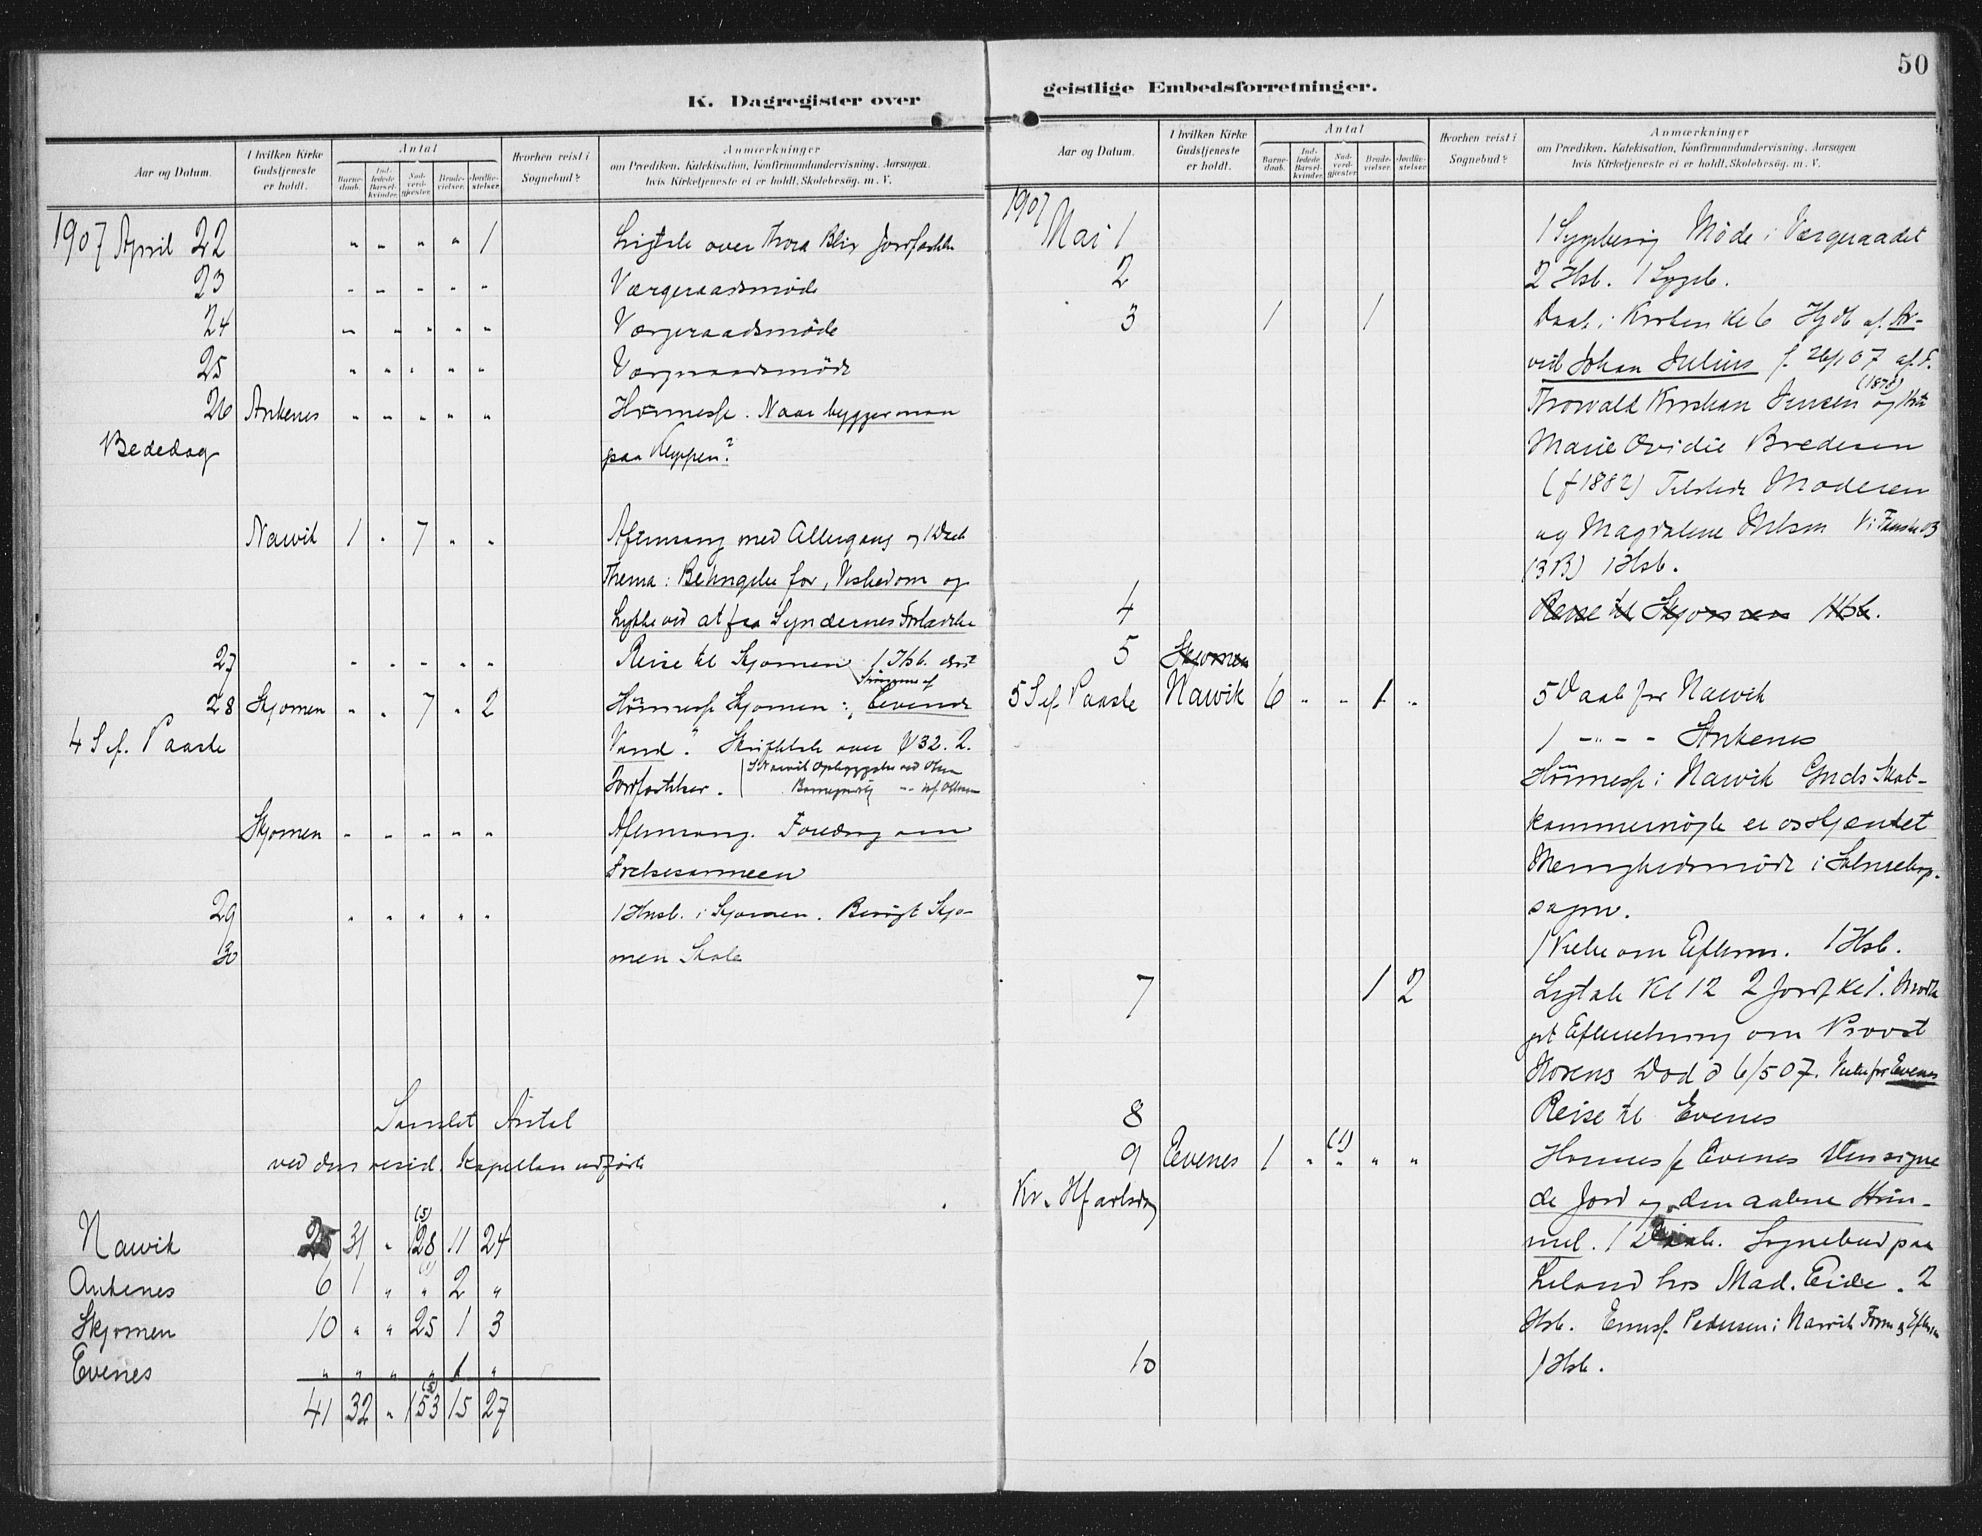 50
K. Dagregister over
geistlige Embedsforretninger.
Aar og Datum.
I hvilken Kirke Gudstjeneste er holdt.
Antal
Barnedaab.
Indledede Barselkvinder.
Nadverdgjester.
Brudevielser.
Jordfæstelser.
Hvorhen reist i Sognebud?
Anmærkninger
om Prædiken, Katekisation, Konfirmandundervisning, Aarsagen,
hvis Kirketjeneste ei er holdt, Skolebesøg, m. V.
1907 April 22 " " " " 1 Ligtale over Thora
23 " " " " " Værgeraadsmøde
24 " " " " " Værgeraadsmøde
25 " " " " " Værgeraadsmøde
26 Ankenes " " " " " Høimesse. Naar bygger man
Bededag paa Klippen?
Narvik 1 " 7 " " Aftensang med Altergang og 1 Daab
Thema: Betingelse for, Vished om og
Lykke ved at faa Syndernes Forladelse
27 " " " " " Reise til Skjomen 1 Hsb.
28 Skjomen " " 7 " 2 Høimesse Skjomen: Levende
4 S. ef. Paaske Vand". Skriftetale over Ψ 32. 2.
Jordfæstelser.
Skjomen " " " " " Aftensang. Foredrag om
Frelsesarmeen
29 " " " " " 1 Husb. i Skjomen. Besøgt Skjo-
30 men Skole
Samlet Antal
ved den resid. Kapellan udført
Narvik 25 31 " (5) 128 11 24
Ankenes 6 1 " " (1) 2 "
Skjomen 10 " " 25 1 3
Evenes " " " " 1 "
41 32 " 153 15 27
Aar og Datum.
I hvilken Kirke Gudstjeneste er holdt.
Antal
Barnedaab.
Indledede Barselkvinder.
Nadverdgjester.
Brudevielser.
Jordfæstelser.
Hvorhen reist i Sognebud?
Anmærkninger
om Prædiken, Katekisation, Konfirmandundervisning, Aarsagen
hvis Kirketjeneste ei er holdt, Skolebesøg, m. V.
1907
Mai 1 1 Sygebesøg Møde i Værgeraadet
2 2 Hsb. 1 Sygeb.
3 1 1 Daab i Kirken Kl 6 Hjdb af Ar-
vid Johan Julius f. 07 af F.
Thorvald Kristian Jensen (1878) og
Marie Ovidie Bredesen
(f 1882) Tilstede Moderen
og Magdalene Nilsen
(3B) 1 Hsb.
4 Reise til Skjomen 1 Hsb.
5 Skjomen
5 S ef. Paaske Narvik 6 " " 1 " 5 Daab for Narvik
1 - " - - Ankenes
Høimesse i Narvik Guds Skat-
kammernøgle er os skjænket
Menighedsmøde i
sagen.
1 Vielse om Efterm. 1 Hsb.
7 1 2 Ligtale Kl 12 2 Jordf Kl 1.
Efterretning om Provst
Død d 6/5 07. Vielse for Evenes
8 Reise til Evenes
9 Evenes 1 " (1) " " " Høimesse Evenes Velsigne
Kr. Hfartsdag de Jord og den aabne Him-
mel. 1 Daab. Sognebud paa
Leland hos Mad. Eide. 2
Hsb. Pedersen i Narvik Form og Efterm
10 1 Hsb.